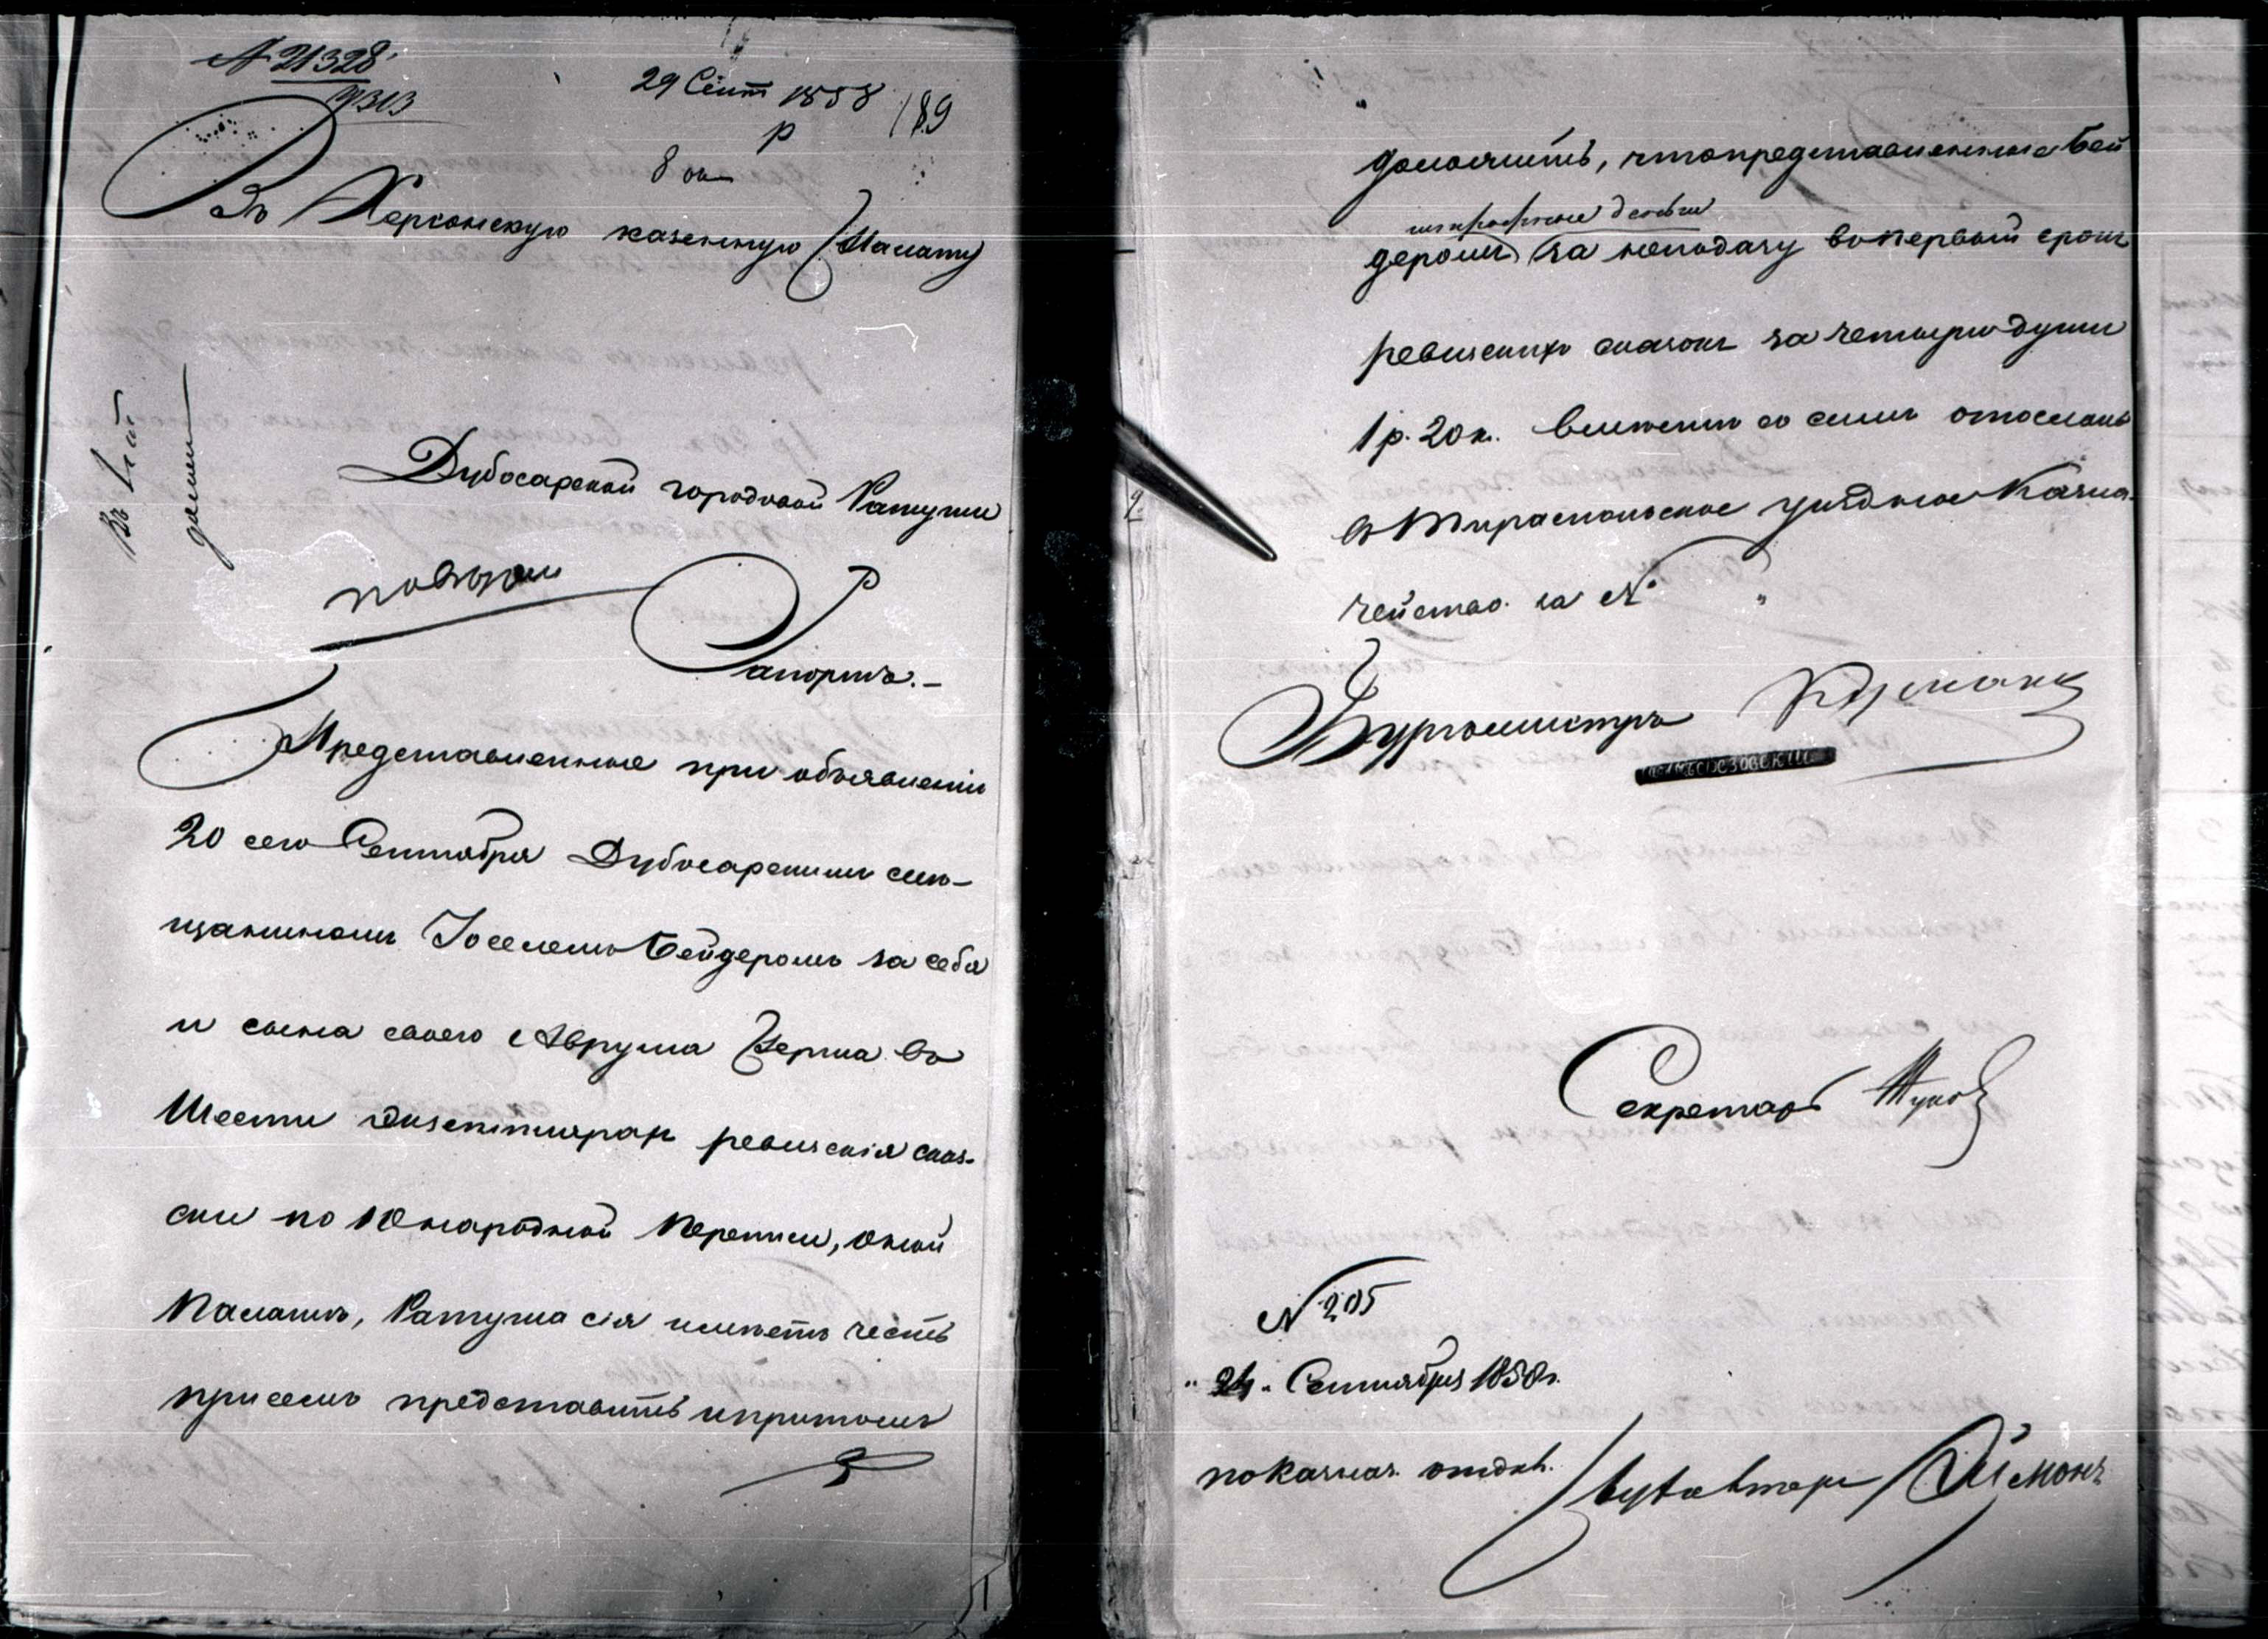 № 21328
29 Сент 1858
189
8 ок
Въ Херсонскую казенную Палату
Дубосарской городовой Ратуши
Рапортъ.—
Представленные при объявленіи
20 сего Сентября Дубосарскимъ мѣ-
щаниномъ Іоселемъ Бейдеромъ за себя
и сына своего Аврума Берка въ
шести экземплярахъ ревизскія сказ-
ски по 10 народной переписи, оной
Палатѣ, Ратуша сія имѣетъ честь
при семъ представить и притомъ
доложить, что представленные Бей
штрафные деньги
деромъ за неподачу въ первый срокъ
ревизскихъ сказокъ за четыре души
1 р. 20 к. вмѣстѣ со симъ отосланы
въ Тираспольское уѣздное Казна-
чейство за №
Бургомистръ
Секретарь
№ 205
„ 24 „ Сентября 1858 г.